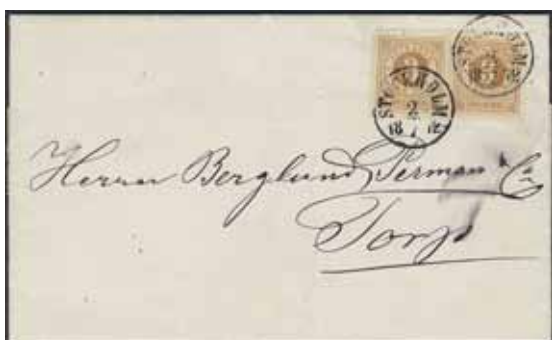 STOCKHOLM
2
18 72
STOCKHOLM
3
Herrn Berglund Perman & Co
Torp